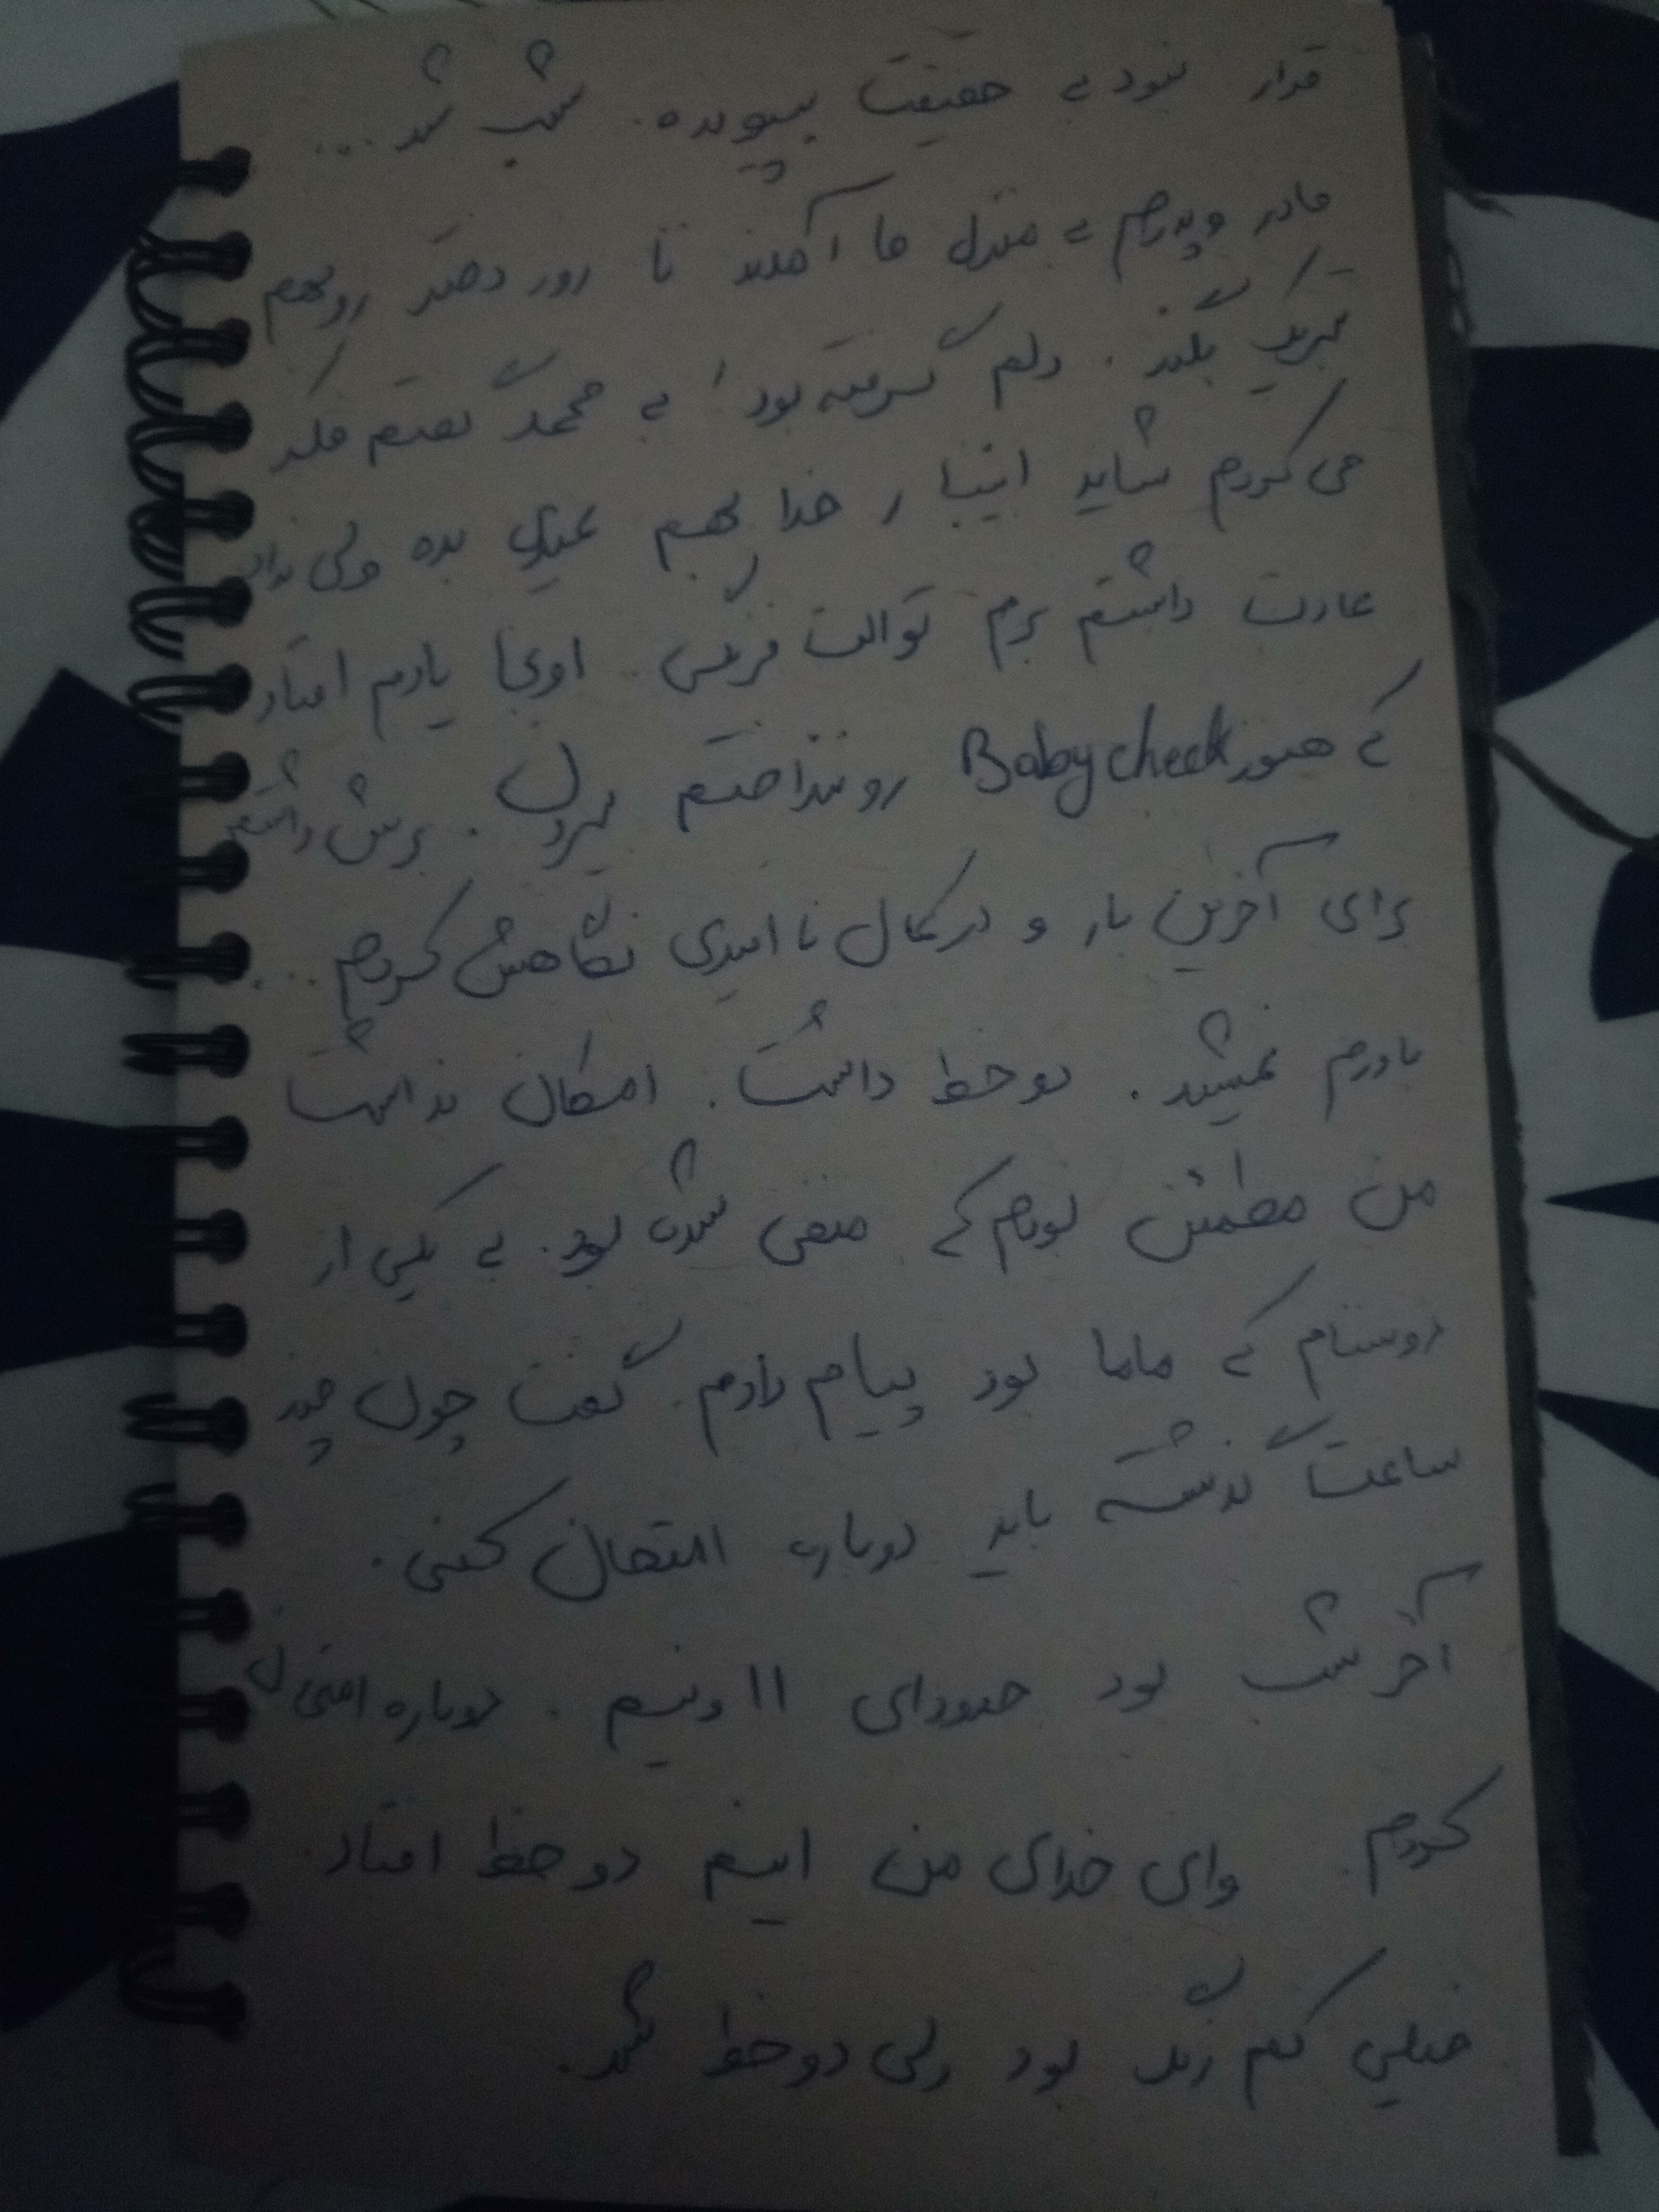 قرار نبود به حقیقت بپیونده. شب شد ...
مادر و پدرم به منزل ما آمدند تا روز دختر رو بهم
تبریک بگند. دلم گرفته بود! به محمد گفتم فکر
می کردم شاید اینبار خدا بهم عیدی بده ولی نداد
عادت داشتم برم توالت فرنگی. اونجا یادم افتاد
که هنوز Baby check رو ننداختم بیرون. برش داشتم
برای آخرین بار و در کمال ناامیدی نگاهش کردم ...
باورم نمیشد. دو خط داشت. امکان نداشت
من مطمئن بودم که منفی شده بود. به یکی از
دوستام که ماما بود پیام دادم. گفت چون چند
ساعت گذشته باید دوباره امتحان کنی.
آخر شب بود حدودای ۱۱ و نیم. دوباره امتحان
کردم. وای خدای من اینم دو خط افتاد.
خیلی کم رنگ بود ولی دو خط شد.